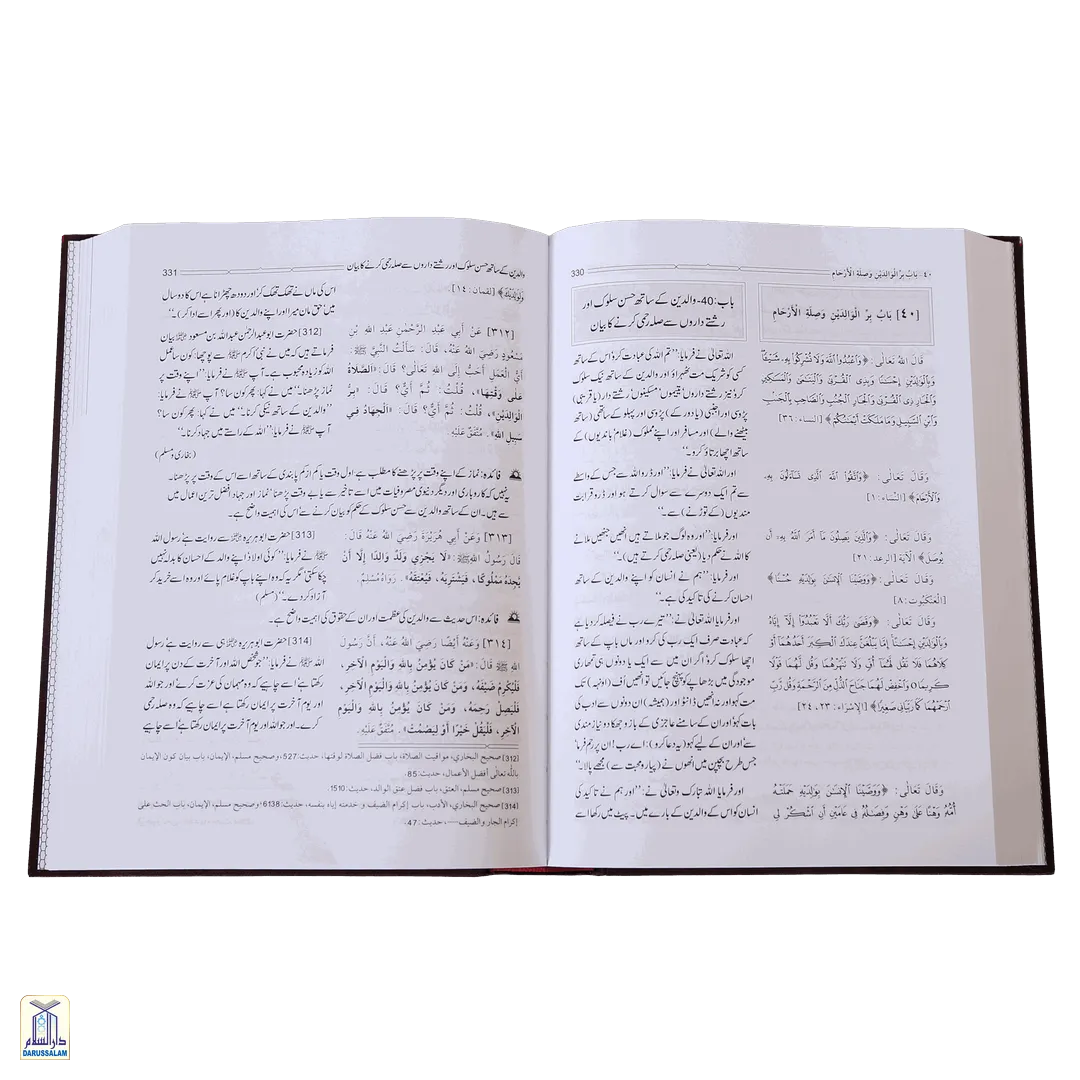 ٤٠- بَابُ بِرِّ الْوَالِدَيْنِ وَصِلَةِ الْأَرْحَامِ
330
[٤٠] بَابُ بِرِّ الْوَالِدَيْنِ وَصِلَةِ الْأَرْحَامِ
قَالَ اللهُ تَعَالَى: ﴿وَاعْبُدُوا اللَّهَ وَلَا تُشْرِكُوا بِهِ شَيْئًا
وَبِالْوَالِدَيْنِ إِحْسَانًا وَبِذِي الْقُرْبَى وَالْيَتَامَى وَالْمَسَاكِينِ
وَالْجَارِ ذِي الْقُرْبَى وَالْجَارِ الْجُنُبِ وَالصَّاحِبِ بِالْجَنبِ
وَابْنِ السَّبِيلِ وَمَا مَلَكَتْ أَيْمَانُكُمْ﴾ [النساء: ٣٦]
وَقَالَ تَعَالَى: ﴿وَاتَّقُوا اللَّهَ الَّذِي تَسَاءَلُونَ بِهِ
وَالْأَرْحَامَ﴾ [النِّسَاء: ١]
وَقَالَ تَعَالَى: ﴿وَالَّذِينَ يَصِلُونَ مَا أَمَرَ اللَّهُ بِهِ أَن
يُوصَلَ﴾ الْآيَةَ [الرعد: ٢١]
وَقَالَ تَعَالَى: ﴿وَوَصَّيْنَا الْإِنسَانَ بِوَالِدَيْهِ حُسْنًا﴾
[الْعَنْكَبُوت: ٨]
وَقَالَ تَعَالَى: ﴿وَقَضَى رَبُّكَ أَلَّا تَعْبُدُوا إِلَّا إِيَّاهُ
وَبِالْوَالِدَيْنِ إِحْسَانًا إِمَّا يَبْلُغَنَّ عِندَكَ الْكِبَرَ أَحَدُهُمَا أَوْ
كِلَاهُمَا فَلَا تَقُل لَّهُمَا أُفٍّ وَلَا تَنْهَرْهُمَا وَقُل لَّهُمَا قَوْلًا
كَرِيمًا ○ وَاخْفِضْ لَهُمَا جَنَاحَ الذُّلِّ مِنَ الرَّحْمَةِ وَقُل رَّبِّ
ارْحَمْهُمَا كَمَا رَبَّيَانِي صَغِيرًا﴾ [الإسراء: ٢٣، ٢٤]
وَقَالَ تَعَالَى: ﴿وَوَصَّيْنَا الْإِنسَانَ بِوَالِدَيْهِ حَمَلَتْهُ
أُمُّهُ وَهْنًا عَلَى وَهْنٍ وَفِصَالُهُ فِي عَامَيْنِ أَنِ اشْكُرْ لِي
باب:40- والدین کے ساتھ حسن سلوک اور
رشتے داروں سے صلہ رحمی کرنے کا بیان
اللہ تعالیٰ نے فرمایا: ''تم اللہ کی عبادت کرو' اس کے ساتھ
کسی کو شریک مت ٹھہراؤ اور والدین کے ساتھ نیک سلوک
کرو' نیز رشتے داروں' یتیموں' مسکینوں' رشتے دار (یا قریبی)
پڑوسی اور اجنبی (یا دور کے) پڑوسی اور پہلو کے ساتھی (ساتھ
بیٹھنے والے) اور مسافر اور اپنے مملوک (غلام' باندیوں) کے
ساتھ اچھا برتاؤ کرو۔''
اور اللہ تعالیٰ نے فرمایا: ''اور ڈرو اللہ سے جس کے واسطے
سے تم ایک دوسرے سے سوال کرتے ہو اور ڈرو قرابت
مندیوں (کے توڑنے) سے۔''
اور فرمایا: ''اور وہ لوگ جو ملاتے ہیں انھیں جنھیں ملانے
کا اللہ نے حکم دیا (یعنی صلہ رحمی کرتے ہیں)۔''
اور فرمایا: ''ہم نے انسان کو اپنے والدین کے ساتھ
احسان کرنے کی تاکید کی ہے۔''
اور فرمایا اللہ تعالیٰ نے: ''تیرے رب نے فیصلہ کر دیا ہے
کہ عبادت صرف ایک رب کی کرو اور ماں باپ کے ساتھ
اچھا سلوک کرو' اگر ان میں سے ایک یا دونوں ہی تمھاری
موجودگی میں بڑھاپے کو پہنچ جائیں تو انھیں اُف (اونہہ) تک
مت کہو اور نہ انھیں ڈانٹو اور (ہمیشہ) ان دونوں سے ادب کی
بات کہو' اور ان کے سامنے عاجزی کے بازو جھکا دو نیاز مندی
سے' اور ان کے لیے کہو (یہ دعا کرو): اے رب! ان پر رحم فرما'
جس طرح بچپن میں انھوں نے (پیار و محبت سے) مجھے پالا۔''
اور فرمایا اللہ تبارک وتعالیٰ نے: ''اور ہم نے تاکید کی
انسان کو اس کے والدین کے بارے میں۔ پیٹ میں رکھا اسے
والدین کے ساتھ حسن سلوک اور رشتے داروں سے صلہ رحمی کرنے کا بیان
331
وَلِوَالِدَيْكَ﴾ [لقمان: ١٤]
اس کی ماں نے تھک تھک کر' اور دودھ چھڑانا ہے اس کا دو سال
میں' حق مان میرا اور اپنے والدین کا (اور پھر اسے ادا کر)۔''
[٣١٢] عَنْ أَبِي عَبْدِ الرَّحْمٰنِ عَبْدِ اللهِ بْنِ
مَسْعُودٍ رَضِيَ اللهُ عَنْهُ، قَالَ: سَأَلْتُ النَّبِيَّ ﷺ:
أَيُّ الْعَمَلِ أَحَبُّ إِلَى اللهِ تَعَالَى؟ قَالَ: «الصَّلَاةُ
عَلَى وَقْتِهَا»، قُلْتُ: ثُمَّ أَيٌّ؟ قَالَ: «بِرُّ
الْوَالِدَيْنِ»، قُلْتُ: ثُمَّ أَيٌّ؟ قَالَ: «الْجِهَادُ فِي
سَبِيلِ اللهِ». مُتَّفَقٌ عَلَيْهِ
[312] حضرت ابو عبدالرحمٰن عبداللہ بن مسعود ؓ بیان
فرماتے ہیں کہ میں نے نبیٔ اکرم ﷺ سے پوچھا: کون سا عمل
اللہ کو زیادہ محبوب ہے۔ آپ ﷺ نے فرمایا: ''اپنے وقت پر
نماز پڑھنا۔'' میں نے کہا: پھر کون سا؟ آپ ﷺ نے فرمایا:
''والدین کے ساتھ نیکی کرنا۔'' میں نے کہا: پھر کون سا؟
آپ ﷺ نے فرمایا: ''اللہ کے راستے میں جہاد کرنا۔''
(بخاری و مسلم)
فائدہ: نماز کے اپنے وقت پر پڑھنے کا مطلب ہے اول وقت یا کم از کم پابندی کے ساتھ اسے اس کے وقت پر پڑھنا۔
یہ نہیں کہ کاروباری اور دیگر دنیوی مصروفیات میں اسے تاخیر سے یا بے وقت پڑھنا' نماز اور جہاد افضل ترین اعمال میں
سے ہیں۔ ان کے ساتھ والدین سے حسن سلوک کے حکم کو بیان کرنے سے اس کی اہمیت واضح ہے۔
[٣١٣] وَعَنْ أَبِي هُرَيْرَةَ رَضِيَ اللهُ عَنْهُ قَالَ:
قَالَ رَسُولُ اللهِ ﷺ: «لَا يَجْزِي وَلَدٌ وَالِدًا إِلَّا أَنْ
يَجِدَهُ مَمْلُوكًا، فَيَشْتَرِيَهُ، فَيُعْتِقَهُ». رَوَاهُ مُسْلِمٌ.
[313] حضرت ابو ہریرہ ؓ سے روایت ہے' رسول اللہ
ﷺ نے فرمایا: ''کوئی اولاد اپنے والد کے احسان کا بدلہ نہیں
چکا سکتی' مگر یہ کہ وہ اپنے باپ کو غلام پائے اور وہ اسے خرید کر
آزاد کر دے۔'' (مسلم)
فائدہ: اس حدیث سے والدین کی عظمت اور ان کے حقوق کی اہمیت واضح ہے۔
[٣١٤] وَعَنْهُ أَيْضًا رَضِيَ اللهُ عَنْهُ، أَنَّ رَسُولَ
اللهِ ﷺ قَالَ: «مَنْ كَانَ يُؤْمِنُ بِاللهِ وَالْيَوْمِ الْآخِرِ،
فَلْيُكْرِمْ ضَيْفَهُ، وَمَنْ كَانَ يُؤْمِنُ بِاللهِ وَالْيَوْمِ الْآخِرِ،
فَلْيَصِلْ رَحِمَهُ، وَمَنْ كَانَ يُؤْمِنُ بِاللهِ وَالْيَوْمِ
الْآخِرِ، فَلْيَقُلْ خَيْرًا أَوْ لِيَصْمُتْ». مُتَّفَقٌ عَلَيْهِ.
[314] حضرت ابو ہریرہ ؓ ہی سے روایت ہے' رسول
اللہ ﷺ نے فرمایا: ''جو شخص اللہ اور آخرت کے دن پر ایمان
رکھتا ہے' اسے چاہیے کہ وہ مہمان کی عزت کرے اور جو اللہ
اور یوم آخرت پر ایمان رکھتا ہے اسے چاہیے کہ وہ صلہ رحمی
کرے۔ اور جو اللہ اور یوم آخرت پر ایمان رکھتا ہے' اسے چاہیے
[312] صحيح البخاري، مواقيت الصلاة، باب فضل الصلاة لوقتها، حديث:527، وصحيح مسلم، الإيمان، باب بيان كون الإيمان
بالله تعالى أفضل الأعمال، حديث:85.
[313] صحيح مسلم، العتق، باب فضل عتق الوالد، حديث:1510.
[314] صحيح البخاري، الأدب، باب إكرام الضيف و خدمته إياه بنفسه، حديث:6138، وصحيح مسلم، الإيمان، باب الحث على
إكرام الجار والضيف...، حديث:47.
دار السلام
DARUSSALAM